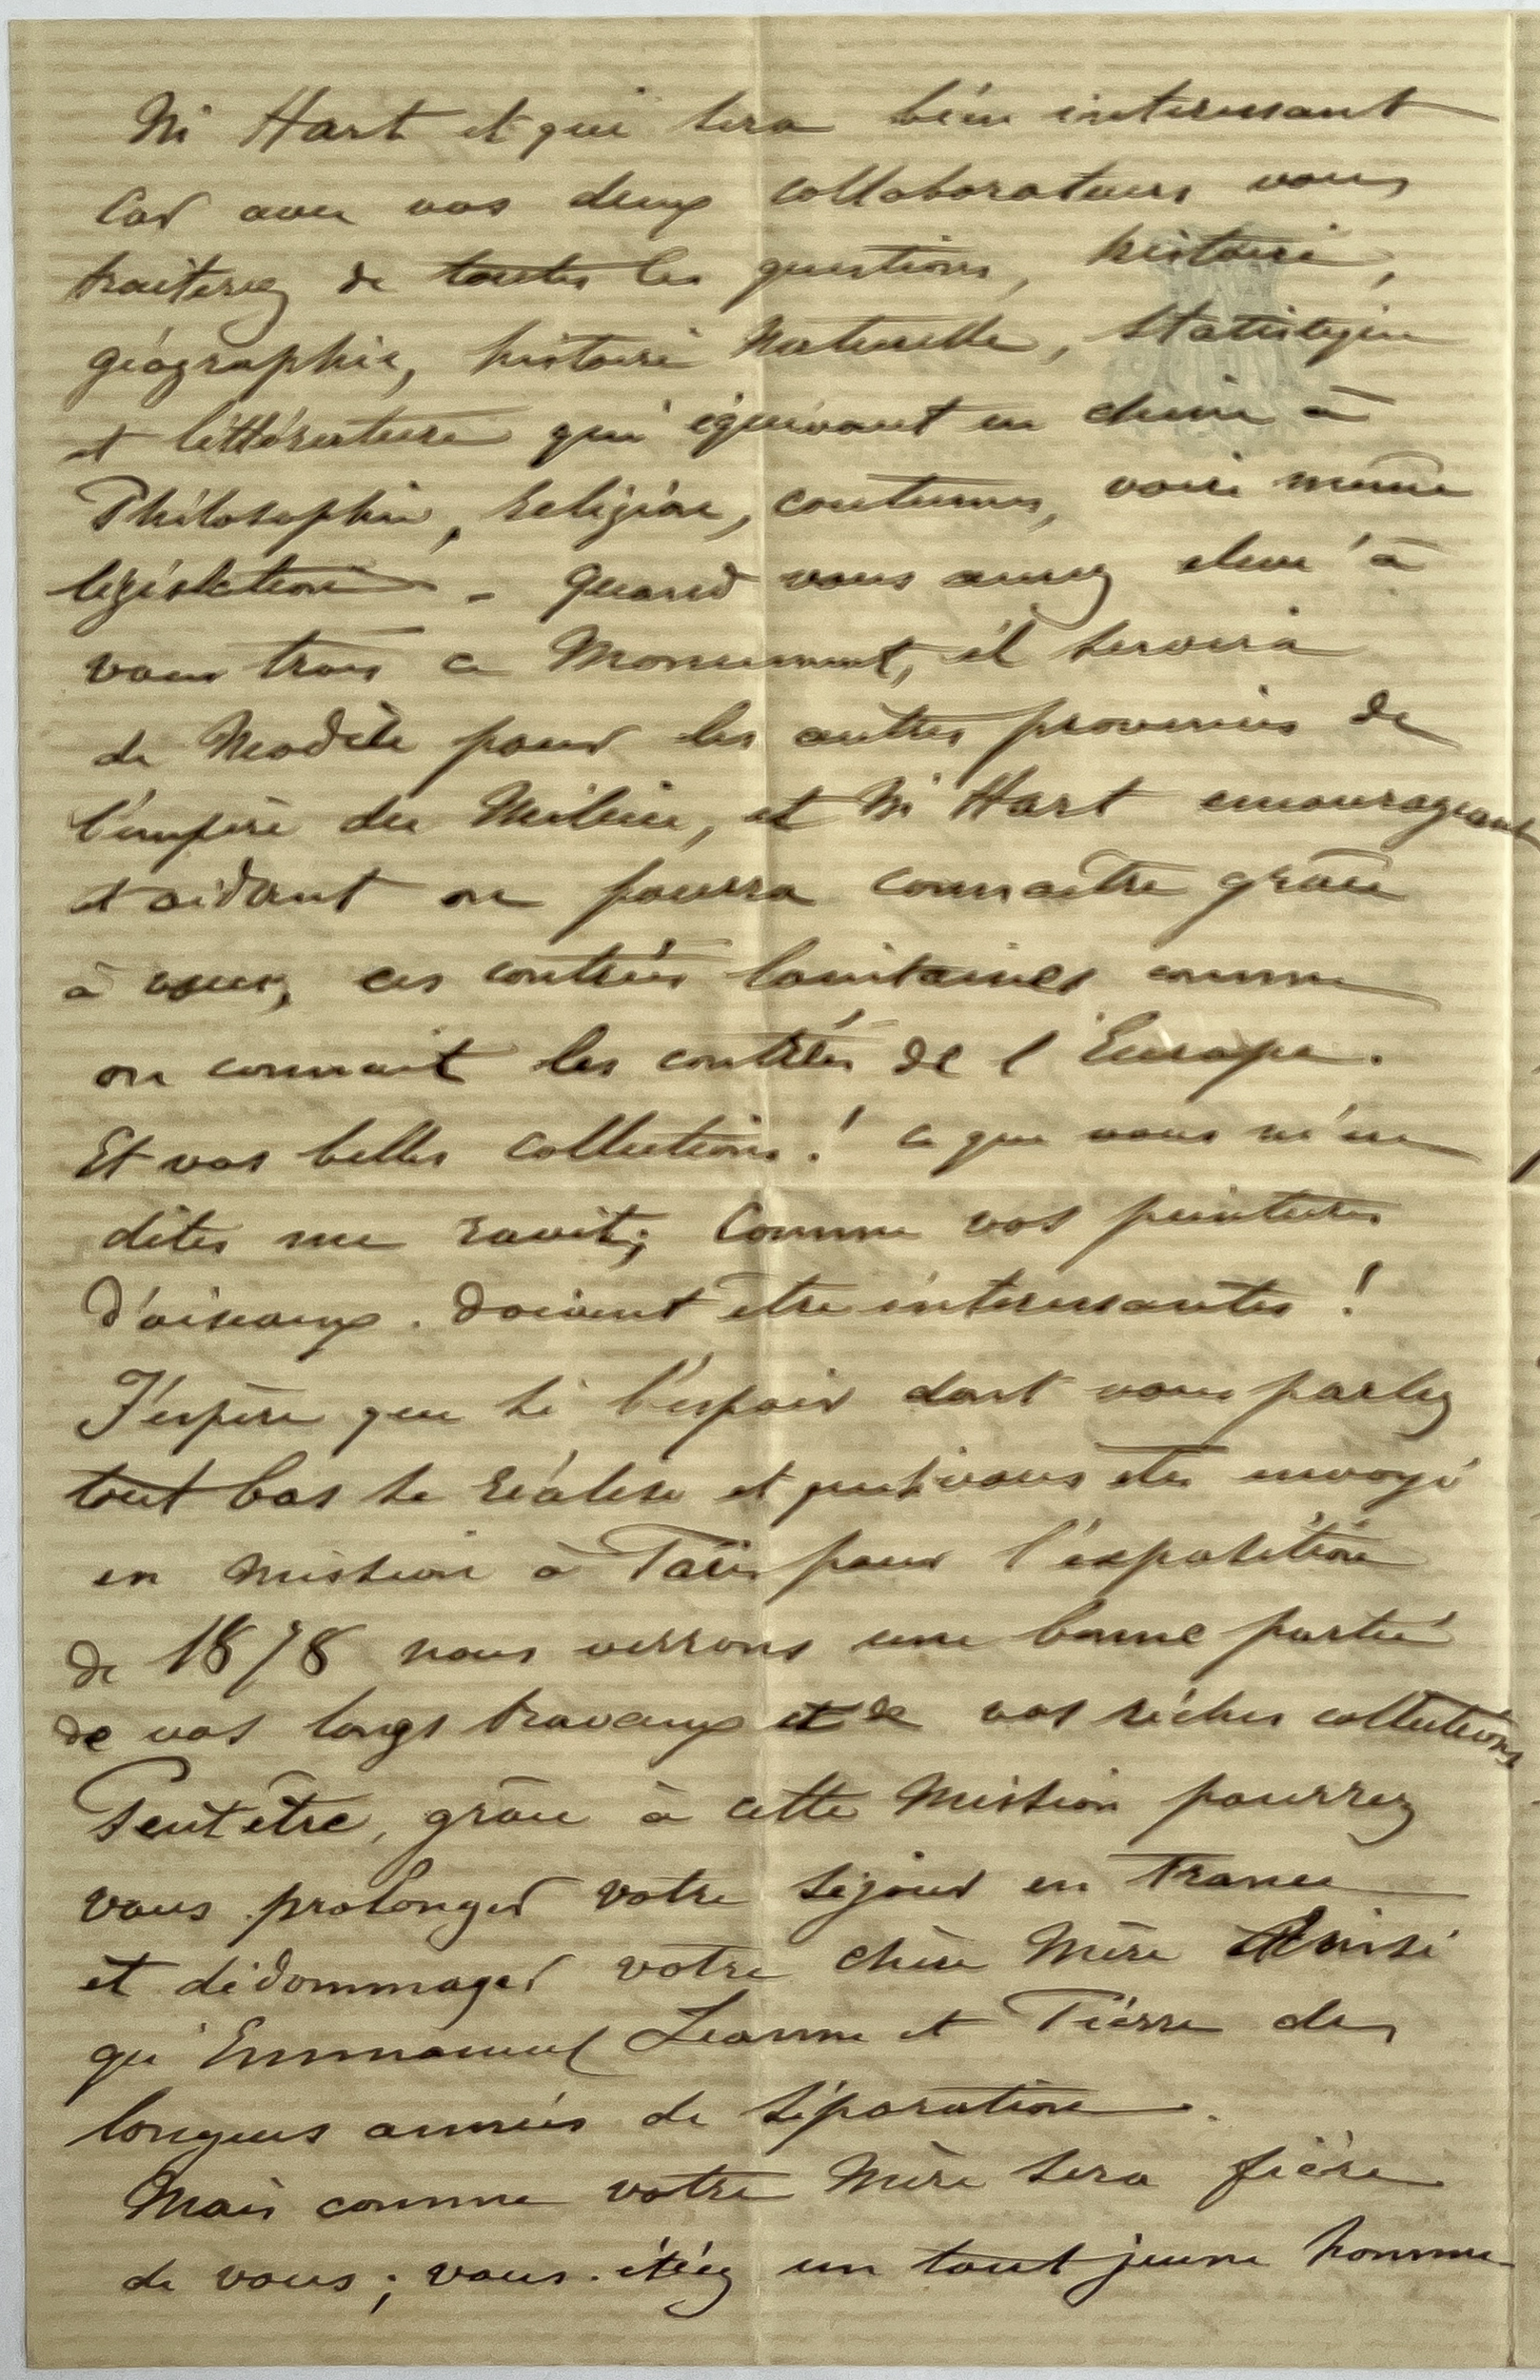 Mr Hart et qui sera bien interessant
Car avec vos deux collaborateurs vous
traiterez de toutes les questions, histoire,
géographie, histoire Naturelle, Statistique
et littérature qui équivaut en chine à
Philosophie, religion, coutumes, voire même
législation. - Quand vous aurez élevé à
vous trois ce Monument, il servira
de Modèle pour les autres provinces de
l'empire du Milieu, et Mr Hart encourageant
et aidant on pourra connaître grâce
à vous, ces contrées lointaines comme
on connait les contrées de l'Europe.
Et vos belles collections! ce que vous m'en
dites me ravit; Comme vos peintures
d'oiseaux. doivent être interessantes!
J'espère que si l'espoir dont vous parlez
tout bas se réalise et que vous êtes envoyé
en mission à Paris pour l'exposition
de 1878 nous verrons une bonne partie
de vos longs travaux et de vos riches collections
Peut être, grâce à cette Mission pourrez
vous prolonger votre séjour en France
et dédommager votre chère Mère Ainsi
qu'Emmanuel Jeanne et Pierre des
longues années de séparation.
Mais comme votre Mère sera fière
de vous; vous. étiez un tout jeune homme